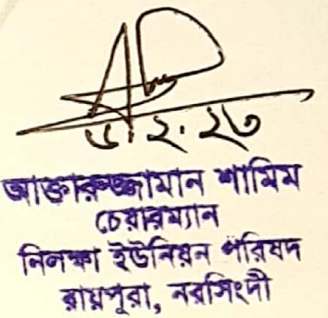 ২.২৩
আক্তারুজ্জামান শামিম
চেয়ারম্যান
নিলক্ষা ইউনিয়ন পরিষদ
রায়পুরা, নরসিংদী